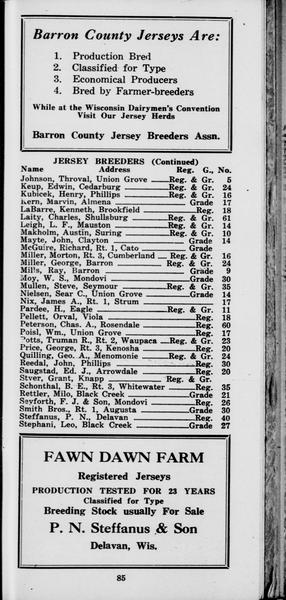 Barron County Jerseys Are:
1. Production Bred
2. Classified for Type
3. Economical Producers
4. Bred by Farmer-breeders
While at the Wisconsin Dairymen's Convention
Visit Our Jersey Herds
Barron County Jersey Breeders Assn.
JERSEY BREEDERS (Continued)
Name Address Reg. G., No.
Johnson, Throval, Union Grove Reg. & Gr. 5
Keup, Edwin, Cedarburg Reg. & Gr. 24
Kubicek, Henry, Phillips Reg. & Gr. 16
Kern, Marvin, Almena Grade 17
LaBarre, Kenneth, Brookfield Reg. 18
Laity, Charles, Shullsburg Reg. & Gr. 61
Leigh, L. F., Mauston Reg. & Gr. 14
Makholm, Austin, Suring Reg. & Gr. 10
Mayte, John, Clayton Grade 14
McGuire, Richard, Rt. 1, Cato Grade
Miller, Morton, Rt. 3, Cumberland Reg. & Gr. 16
Miller, George, Barron Reg. & Gr. 24
Mills, Ray, Barron Grade 9
Moy, W. S., Mondovi Grade 30
Mullen, Steve, Seymour Reg. & Gr. 35
Nielsen, Sear C., Union Grove Grade 14
Nix, James A., Rt. 1, Strum 17
Pardee, H., Eagle Reg. & Gr. 11
Pellett, Orval, Viola Reg. 18
Peterson, Chas. A., Rosendale Reg. 60
Poisl, Wm., Union Grove Reg. 17
Potts, Truman R., Rt. 2, Waupaca Reg. & Gr. 23
Price, George, Rt. 3, Kenosha Reg. 20
Quilling, Geo. A., Menomonie Reg. & Gr. 24
Reedal, John, Phillips Reg. 30
Saugstad, Ed. J., Arrowdale Reg. 20
Styer, Grant, Knapp Reg. & Gr.
Schonthal, B. E., Rt. 3, Whitewater Reg. 35
Rettler, Milo, Black Creek Grade 21
Seyforth, F. J. & Son, Mondovi Reg. 26
Smith Bros., Rt. 1, Augusta Grade 30
Steffanus, P. N., Delavan Reg. 40
Stephani, Leo, Black Creek Grade 27
FAWN DAWN FARM
Registered Jerseys
PRODUCTION TESTED FOR 23 YEARS
Classified for Type
Breeding Stock usually For Sale
P. N. Steffanus & Son
Delavan, Wis.
85